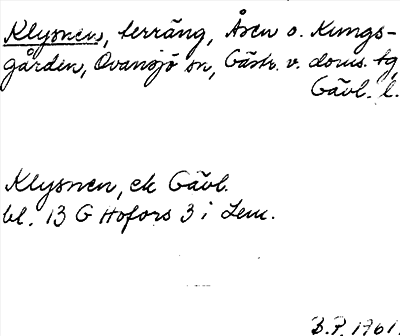 Klysnen, terräng, Åsen o. Kungs-
gården, Ovansjö sn, Gästr. v. doms. tg,
Gävl. l.
Klysnen, ek Gävl.
bl. 13 G Hofors 3 i Lem.
B.P. 1961.